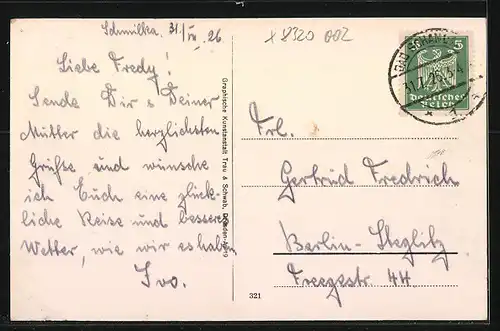 Schmilka, 31./VII. 26
Liebe Fredy!
Sende Dir & Deiner
Mutter die herzlichsten
Grüße und wünsche
ich Euch eine glück-
liche Reise und besseres
Wetter, wie wir es haben
Ivo.
Graphische Kunstanstalt Trau & Schwab, Dresden-A.
x 8320 002
5
Deutsches
Reich
Frl.
Gertrud Fredrich
Berlin-Steglitz
Fregestr. 44
321